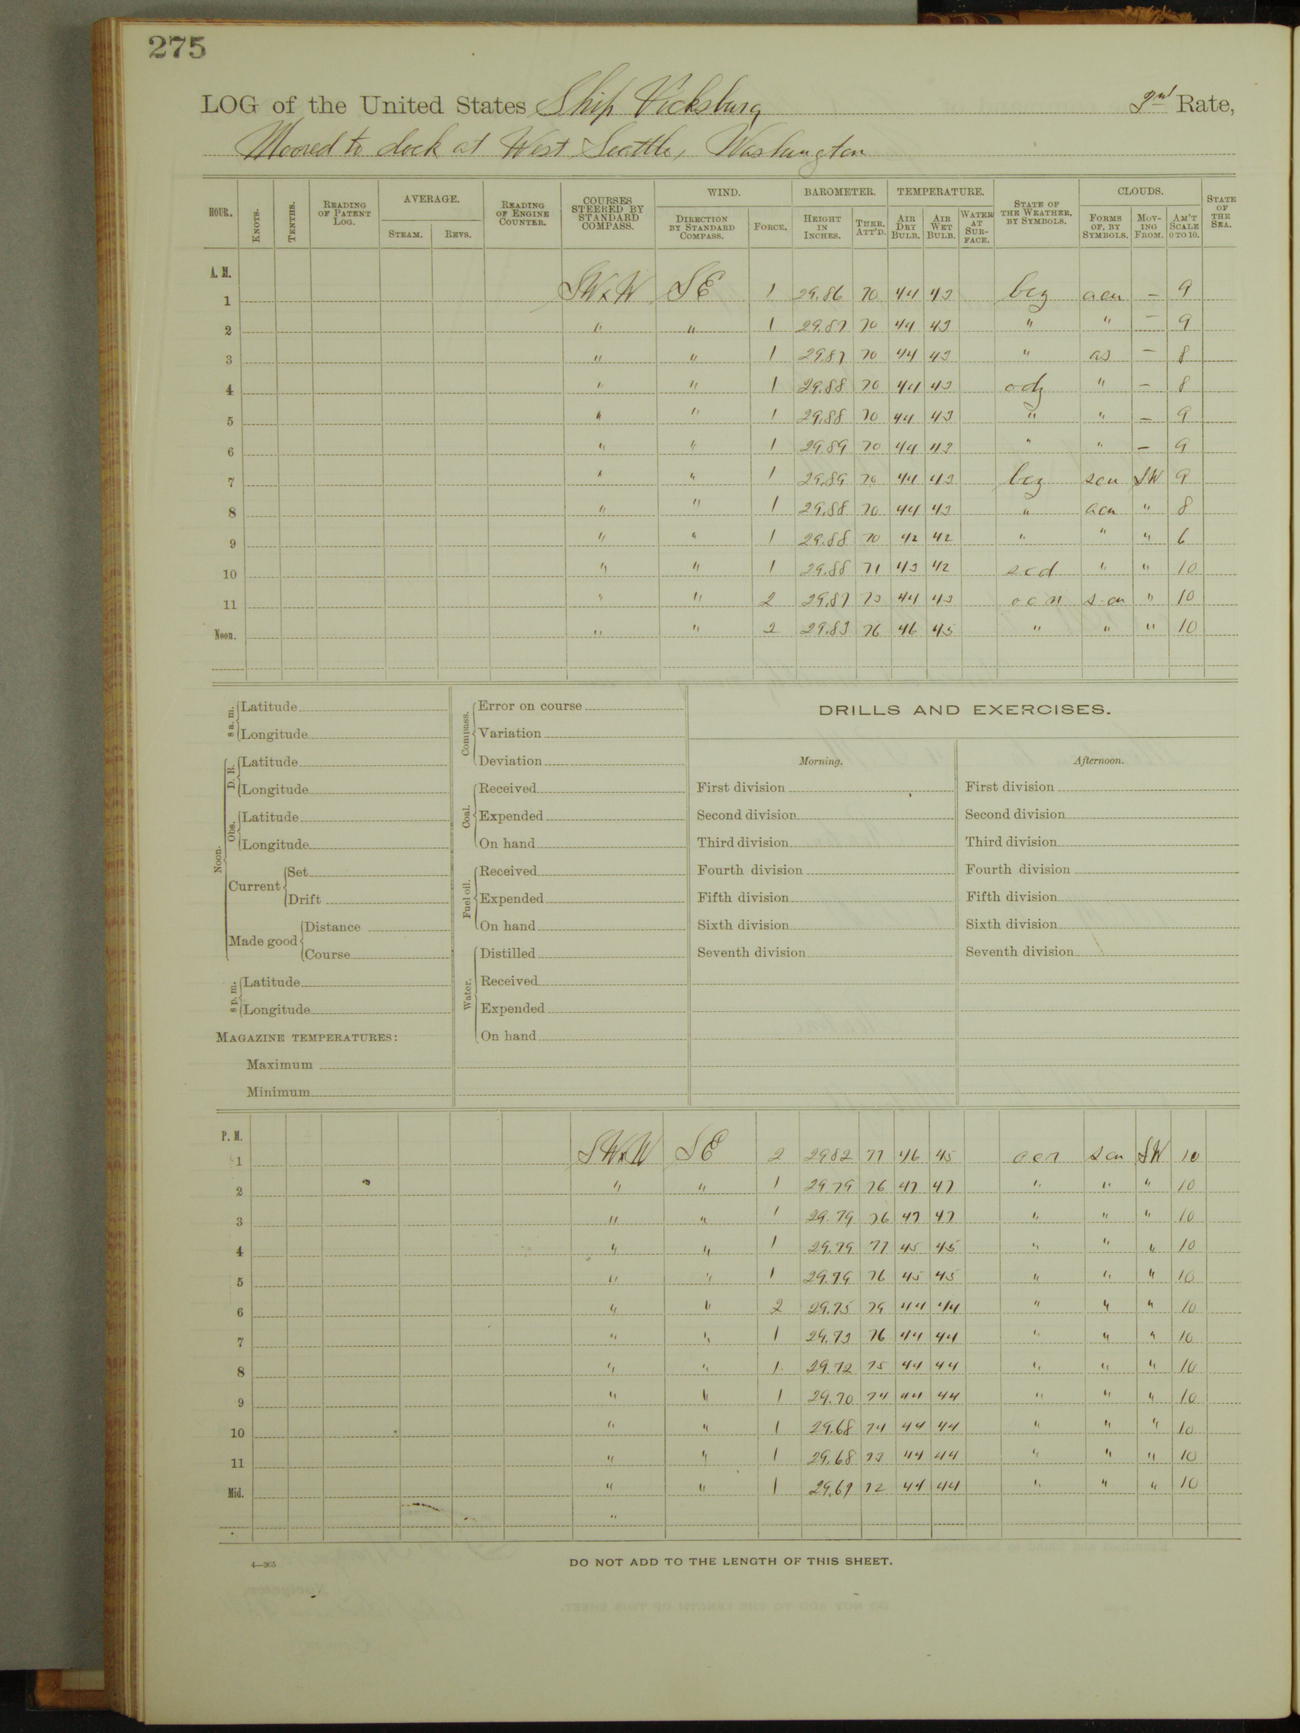 275
LOG of the United States Ship Vicksburg 2nd Rate,
Moored to dock at West Seattle, Washington
HOUR. KNOTS. TENTHS. READING OF PATENT LOG. AVERAGE. STEAM. REVS. READING OF ENGINE COUNTER. COURSES STEERED BY STANDARD COMPASS. WIND. DIRECTION BY STANDARD COMPASS. FORCE. BAROMETER. HEIGHT IN INCHES. THER. ATT'D. TEMPERATURE. AIR DRY BULB. AIR WET BULB. WATER AT SURFACE. STATE OF THE WEATHER, BY SYMBOLS. CLOUDS. FORMS OF, BY SYMBOLS. MOVING FROM. AM'T SCALE 0 TO 10. STATE OF THE SEA.
A. M.
1 SWxW SE 1 29.86 70 44 43 bcz acu – 9
2 " " 1 29.87 70 44 43 " " – 9
3 " " 1 29.87 70 44 43 " as – 8
4 " " 1 29.88 70 44 43 odz " – 8
5 " " 1 29.88 70 44 43 " " – 9
6 " " 1 29.89 70 44 43 " " – 9
7 " " 1 29.89 70 44 43 bcz scu SW 9
8 " " 1 29.88 70 44 43 " acu " 8
9 " " 1 29.88 70 42 42 " " " 6
10 " " 1 29.88 71 43 42 " " 10
11 " " 2 29.87 73 44 43 scu " 10
Noon. " " 2 29.83 76 46 45 " " " 10
8 a. m. Latitude
Longitude
Noon. D. R. Latitude
Longitude
Obs. Latitude
Longitude
Current Set
Drift
Made good Distance
Course
8 p. m. Latitude
Longitude
MAGAZINE TEMPERATURES:
Maximum
Minimum
Compass. Error on course
Variation
Deviation
Coal. Received
Expended
On hand
Fuel oil. Received
Expended
On hand
Water. Distilled
Received
Expended
On hand
DRILLS AND EXERCISES.
Morning. Afternoon.
First division First division
Second division Second division
Third division Third division
Fourth division Fourth division
Fifth division Fifth division
Sixth division Sixth division
Seventh division Seventh division
P. M.
1 SWxW SE 2 2982 77 46 45 scu SW 10
2 " " 1 29 79 76 47 47 " " " 10
3 " " 1 29.79 76 47 47 " " " 10
4 " " 1 29.79 77 45 45 " " " 10
5 " " 1 29.79 76 45 45 " " " 10
6 " " 2 29.75 79 44 44 " " " 10
7 " " 1 29.73 76 44 44 " " " 10
8 " " 1 29.72 75 44 44 " " " 10
9 " " 1 29.70 74 44 44 " " " 10
10 " " 1 29.68 74 44 44 " " " 10
11 " " 1 29.68 73 44 44 " " " 10
Mid. " " 1 29.67 72 44 44 " " " 10
"
4—265
DO NOT ADD TO THE LENGTH OF THIS SHEET.